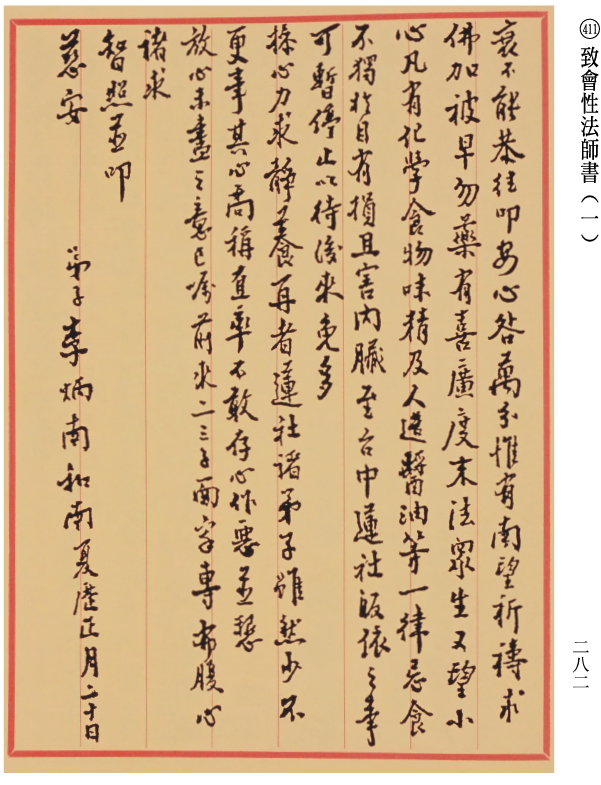 ㊶411 致會性法師書（一）
衰不能恭往叩安心咎萬分惟有南望祈禱求
佛加被早勿藥有喜廣度末法眾生又望小
心凡有化學食物味精及人造醬油等一律忌食
不獨於目有損且害內臟至台中蓮社皈依之事
可暫停止以待後來免多
操心力求靜養再者蓮社諸弟子雖然少不
更事其心尚稱直率不敢存心作惡並懇
放心未盡之意已囑前求二三子面稟專布腹心
諸求
智照並叩
慈安
弟子李炳南和南夏歷正月二十日
二八二